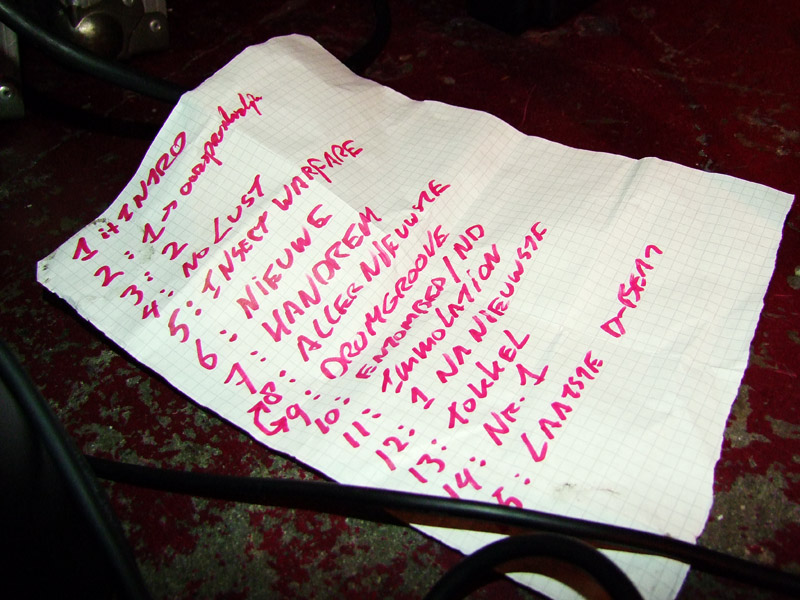 1: INTRO
2: 1 →
3: 2
4: NO LUST
5: INSECT WARFARE
6: NIEUWE
7: HANDREM
8: ALLER NIEUWSTE
9: DRUMGROOVE
10: ENTOMBED/ND
11: IMMOLATION
12: 1 NA NIEUWSTE
13: TOKKEL
14: NR. 1
5: LAATSTE D-BEAT